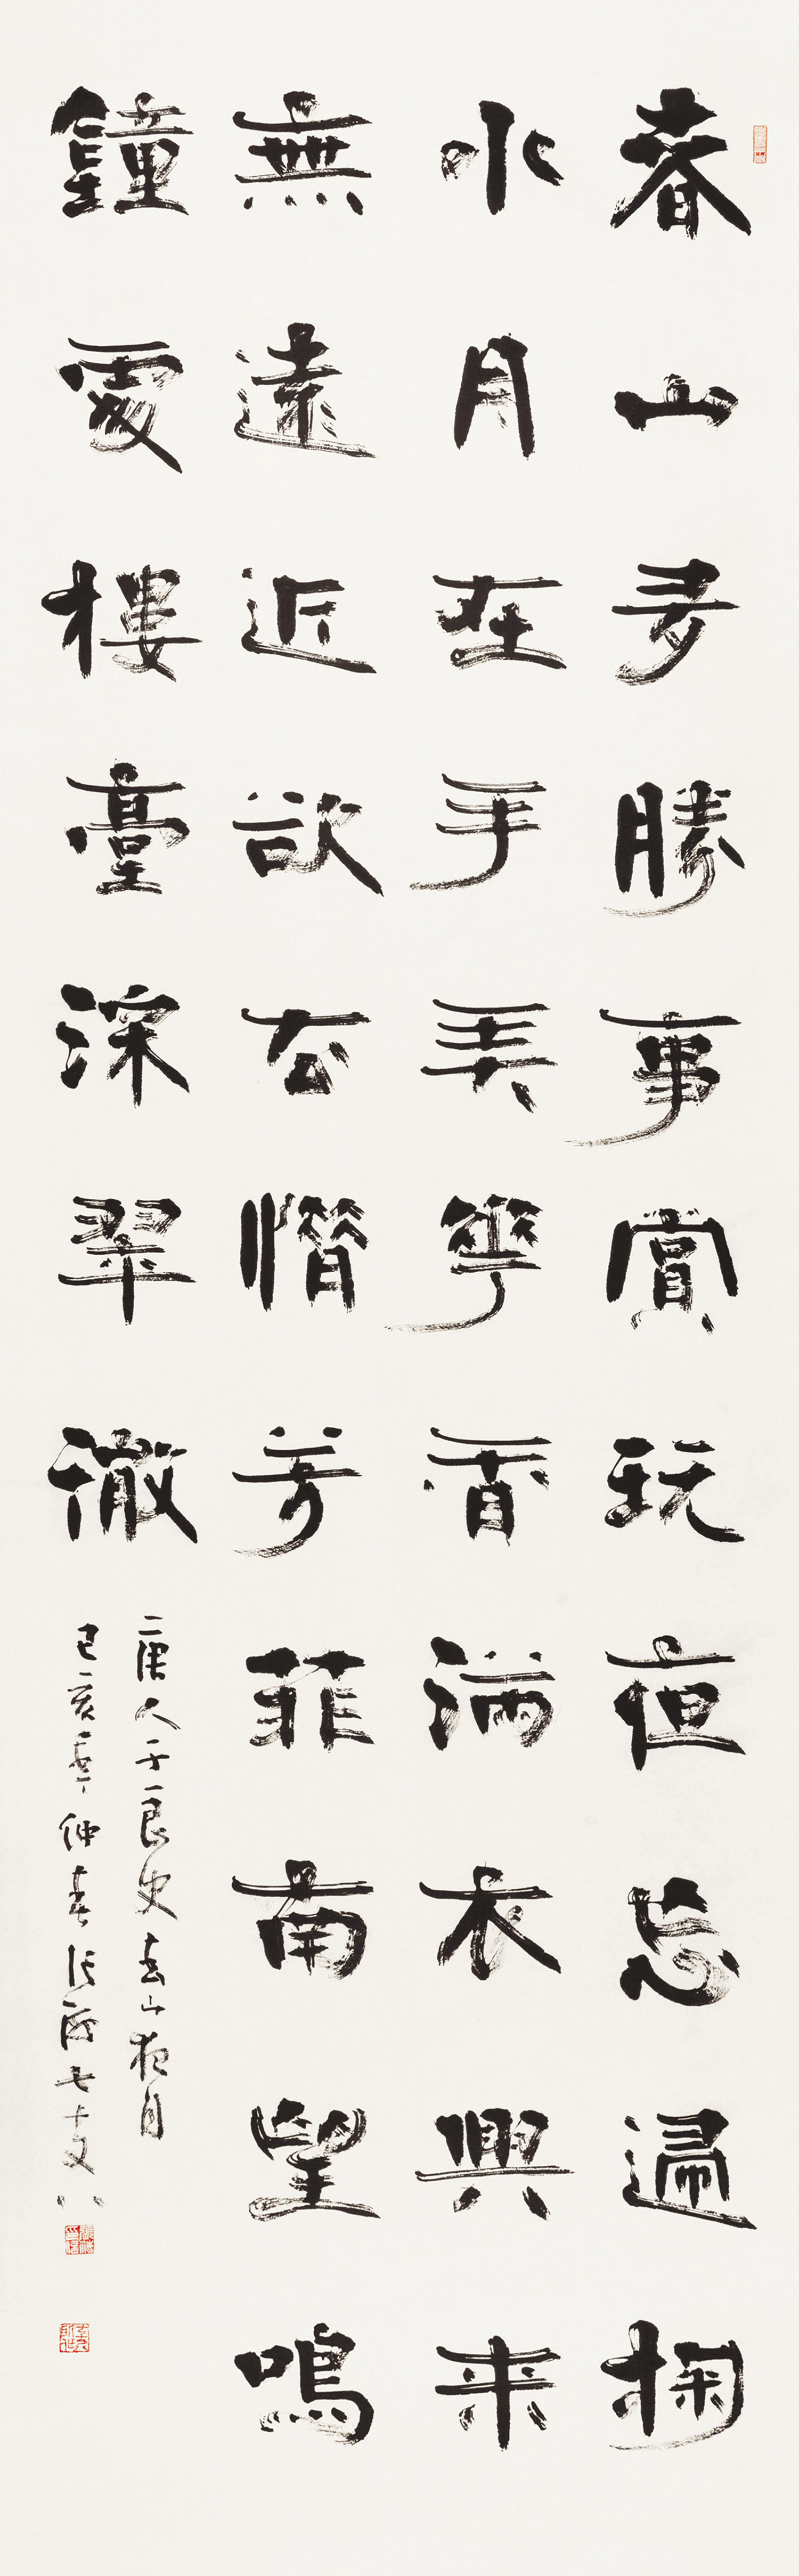 春山多勝事賞玩夜忘歸掬
水月在手弄華香滿衣興来
無遠近欲去惜芳菲南望鳴
鐘處樓臺深翠微
唐人于良史春山夜月
己亥年仲春張海七十又八